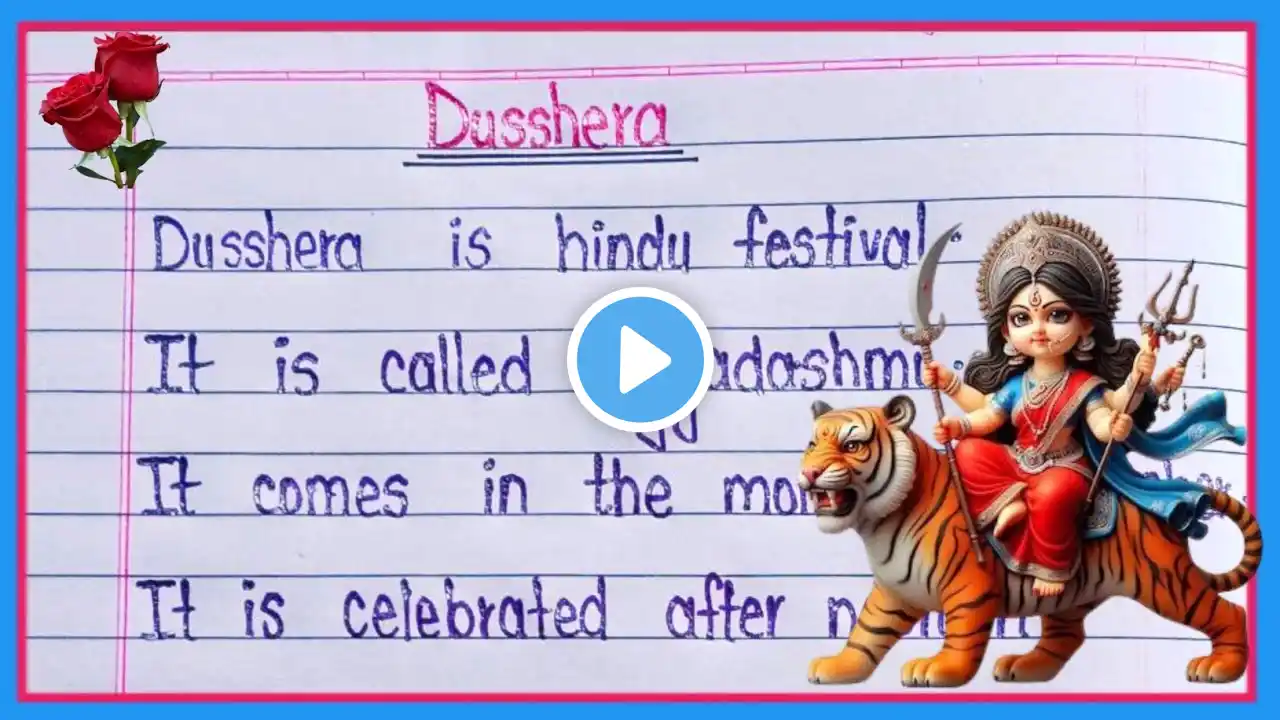 Dusshera
Dusshera is hindu festival.
It is called
It comes in the
It is celebrated after